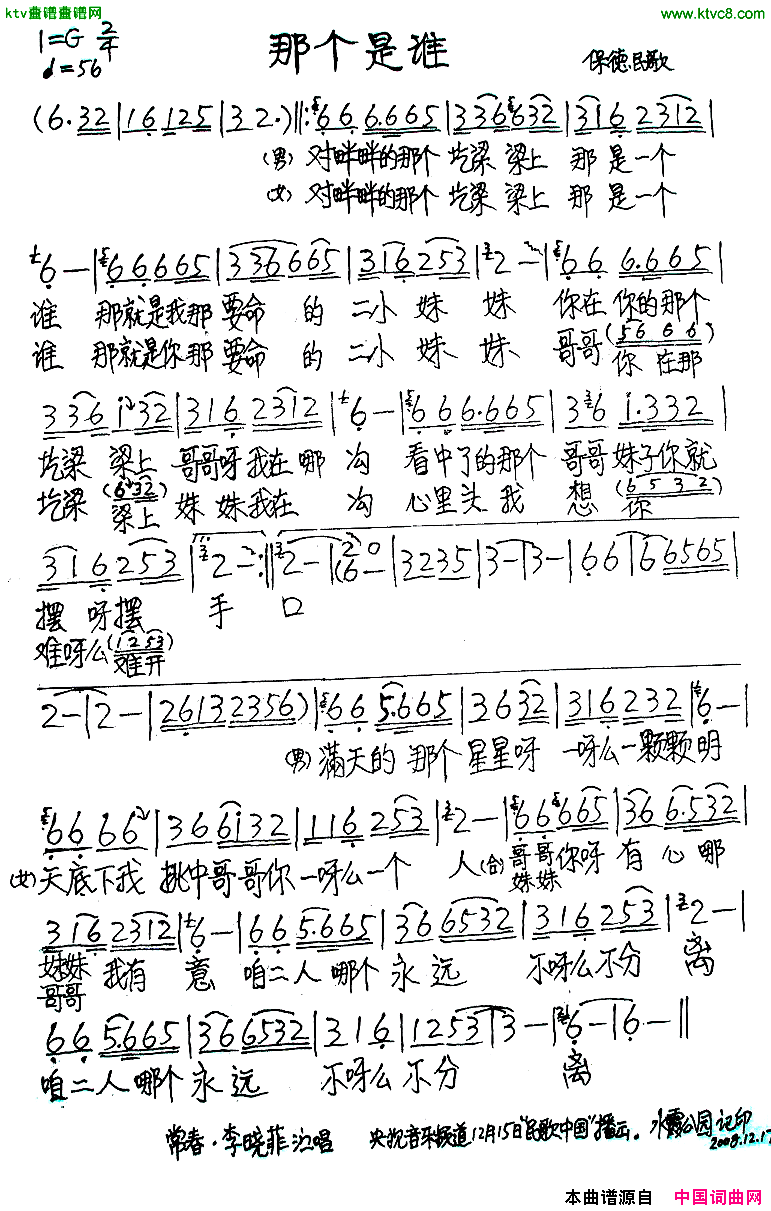 ktv曲谱曲谱网 www.ktvc8.com
1=G 2/4
♩=56
那个是谁
保德民歌
(6·32|16 125|32·)‖:66 6.665|336 632|316 2312|
(男) 对畔畔的那个 圪梁 梁上 那 是一个
(女) 对畔畔的那个 圪梁 梁上 那 是一个
6-|66665|336665|316253|2-|66 6.665|
谁 那就是我那 要命 的 二小 妹 妹 你在 你的那个
谁 那就是你那 要命 的 二小 妹 妹 哥哥 (56 6 6)
你 在那
336 i32|316 2312|6-|66 6.665|36 i.332|
圪梁 梁上 哥哥呀我在哪 沟 看中了的那个 哥哥 妹子你就
圪梁 (6i32) 妹 妹我在 沟 心里头我 想 (6532)
梁上 你
316 253|2-:‖2-|2 0 (6-|3235|3-|3-|66|66565|
摆 呀摆 手 口
难呀么(1253)
难开
2-|2-|26132356)|66 5.665|3632|316 232|6-|
(男) 满天的 那个 星星呀 一呀么一颗颗明
66 66|366i32|116 253|2-|66 665|36 6.532|
(女) 天底下我 挑中哥哥你 一呀么一个 人 (合) 哥哥你呀 有 心 哪
妹妹
316 2312|6-|66 5.665|366532|316 253|2-|
妹妹 我有 意 咱二人 哪个 永 远 不呀么不分 离
哥哥
66 5.665|366532|316|1253|3-|6-|6-‖
咱二人 哪个 永 远 不呀么 不分 离
常春·李晓菲演唱 央视音乐频道12月15日"民歌中国"播出。水霞公园记印
2008.12.17
本曲谱源自 中国词曲网